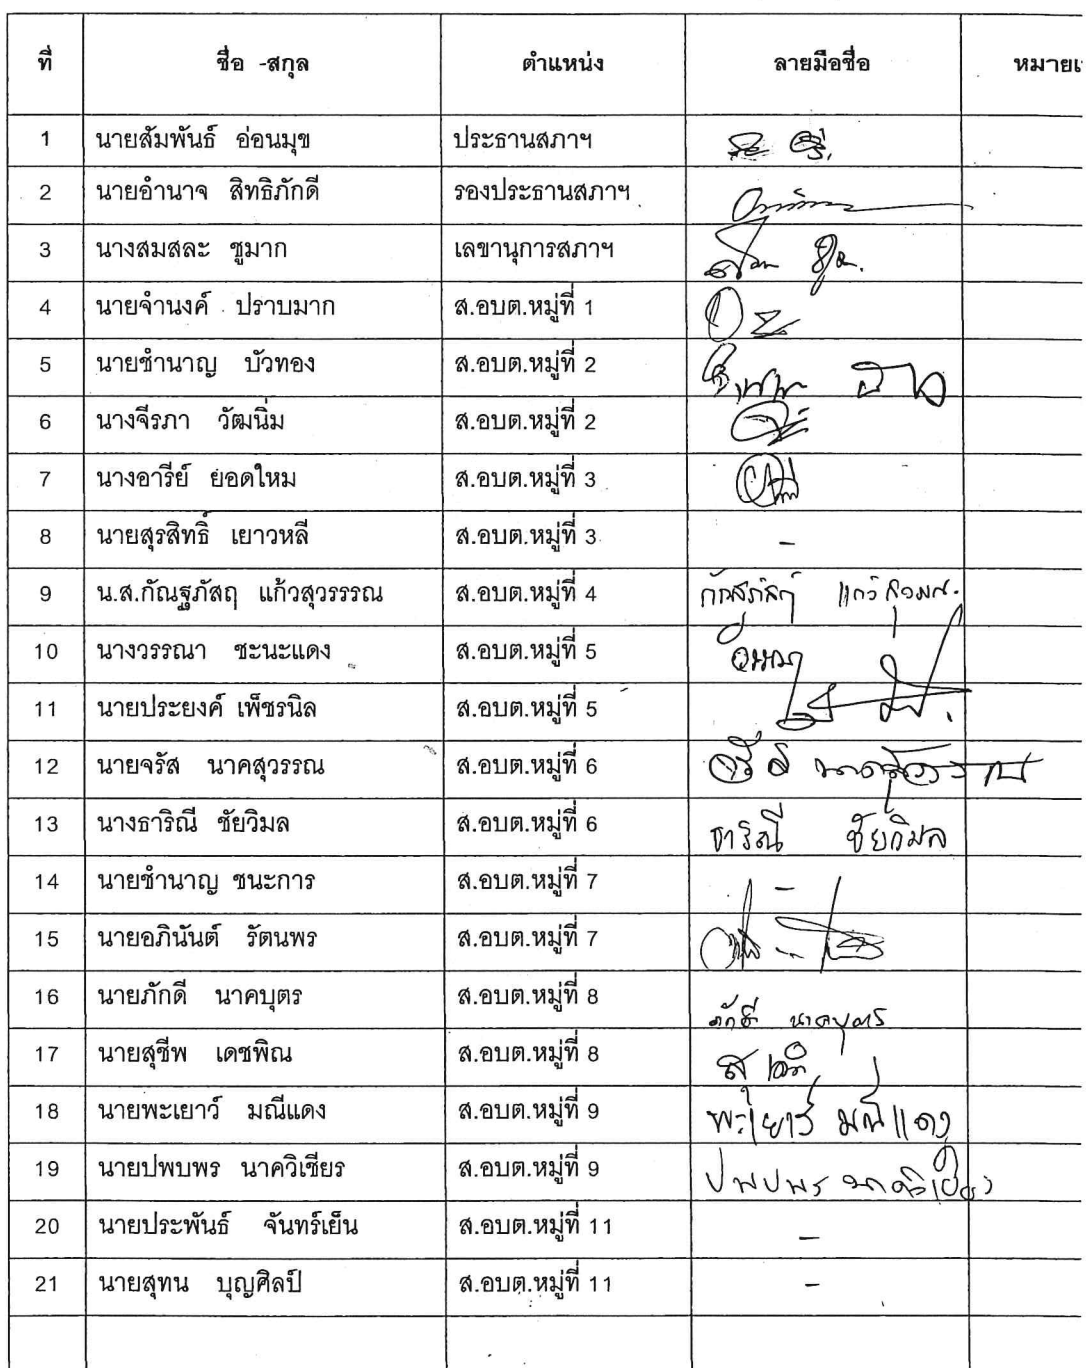 ที่ ชื่อ -สกุล ตำแหน่ง ลายมือชื่อ หมายเ
1 นายสัมพันธ์ อ่อนมุข ประธานสภาฯ
2 นายอำนาจ สิทธิภักดี รองประธานสภาฯ
3 นางสมสละ ชูมาก เลขานุการสภาฯ
4 นายจำนงค์ ปราบมาก ส.อบต.หมู่ที่ 1
5 นายชำนาญ บัวทอง ส.อบต.หมู่ที่ 2
6 นางจีรภา วัฒนิ่ม ส.อบต.หมู่ที่ 2
7 นางอารีย์ ยอดใหม ส.อบต.หมู่ที่ 3
8 นายสุรสิทธิ์ เยาวหลี ส.อบต.หมู่ที่ 3 -
9 น.ส.กัณฐภัสฤ แก้วสุวรรรณ ส.อบต.หมู่ที่ 4
10 นางวรรณา ชะนะแดง ส.อบต.หมู่ที่ 5
11 นายประยงค์ เพ็ชรนิล ส.อบต.หมู่ที่ 5
12 นายจรัส นาคสุวรรณ ส.อบต.หมู่ที่ 6
13 นางธาริณี ชัยวิมล ส.อบต.หมู่ที่ 6 ธาริณี ชัยวิมล
14 นายชำนาญ ชนะการ ส.อบต.หมู่ที่ 7 -
15 นายอภินันต์ รัตนพร ส.อบต.หมู่ที่ 7
16 นายภักดี นาคบุตร ส.อบต.หมู่ที่ 8 ภักดี นาคบุตร
17 นายสุชีพ เดชพิณ ส.อบต.หมู่ที่ 8
18 นายพะเยาว์ มณีแดง ส.อบต.หมู่ที่ 9 พะเยาว์ มณีแดง
19 นายปพบพร นาควิเชียร ส.อบต.หมู่ที่ 9
20 นายประพันธ์ จันทร์เย็น ส.อบต.หมู่ที่ 11 -
21 นายสุทน บุญศิลป์ ส.อบต.หมู่ที่ 11 -